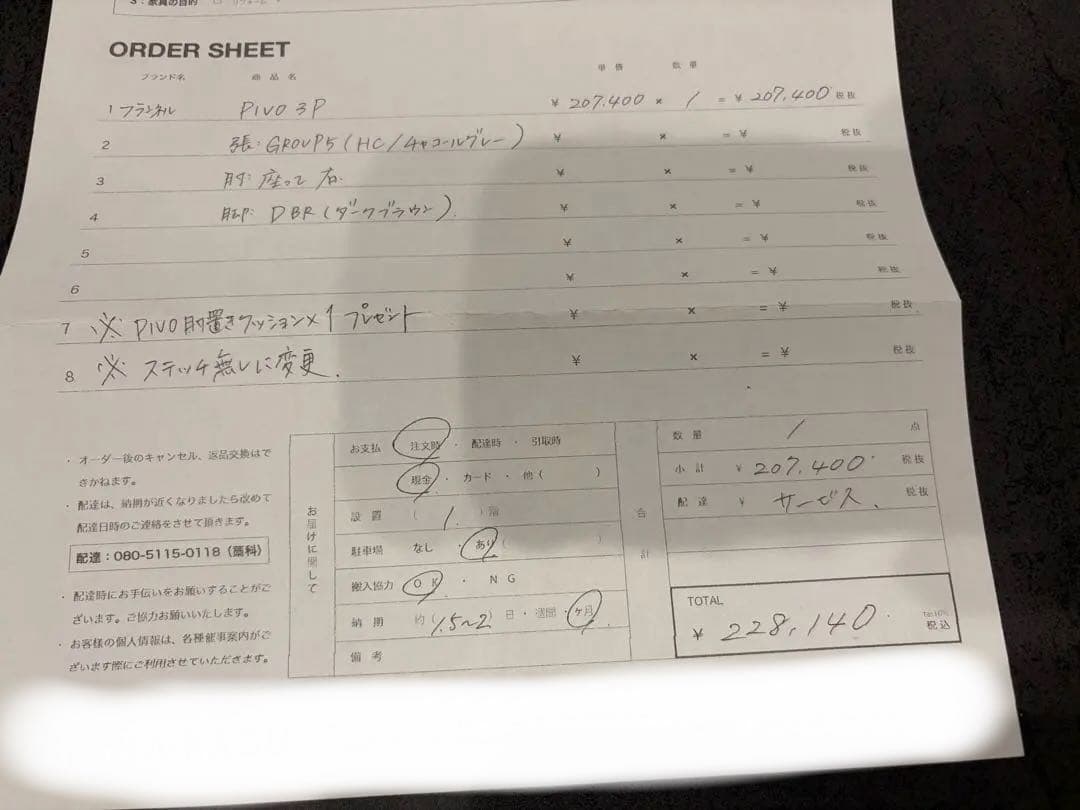 3：家具の目的 リフォーム
ORDER SHEET
ブランド名 商品名 単価 数量
1 フランネル PIVO 3P ¥ 207,400 × 1 = ¥ 207,400 税抜
2 張：GROUP5 (HC/チャコールグレー) ¥ × = ¥ 税抜
3 肘：座って右. ¥ × = ¥ 税抜
4 脚：DBR (ダークブラウン). ¥ × = ¥ 税抜
5 ¥ × = ¥ 税抜
6 ¥ × = ¥ 税抜
7 ※ PIVO肘置きクッション×1 プレゼント ¥ × = ¥ 税抜
8 ※ ステッチ無しに変更. ¥ × = ¥ 税抜
・オーダー後のキャンセル、返品交換はで
きかねます。
・配達は、納期が近くなりましたら改めて
配達日時のご連絡をさせて頂きます。
配達：080-5115-0118（藁科）
・配達時にお手伝いをお願いすることがご
ざいます。ご協力お願いいたします。
・お客様の個人情報は、各種催事案内がご
ざいます際にご利用させていただきます。
お届けに関して
お支払 注文時 ・ 配達時 ・ 引取時
現金 ・ カード ・ 他（ ）
設置 （ 1. ）階
駐車場 なし ・ あり（ ）
搬入協力 OK ・ NG
納期 約 1.5～2 日 ・ 週間 ・ ヶ月
備考
合計
数量 1 点
小計 ¥ 207,400 税抜
配達 ¥ サービス. 税抜
TOTAL
¥ 228,140 Tax10% 税込